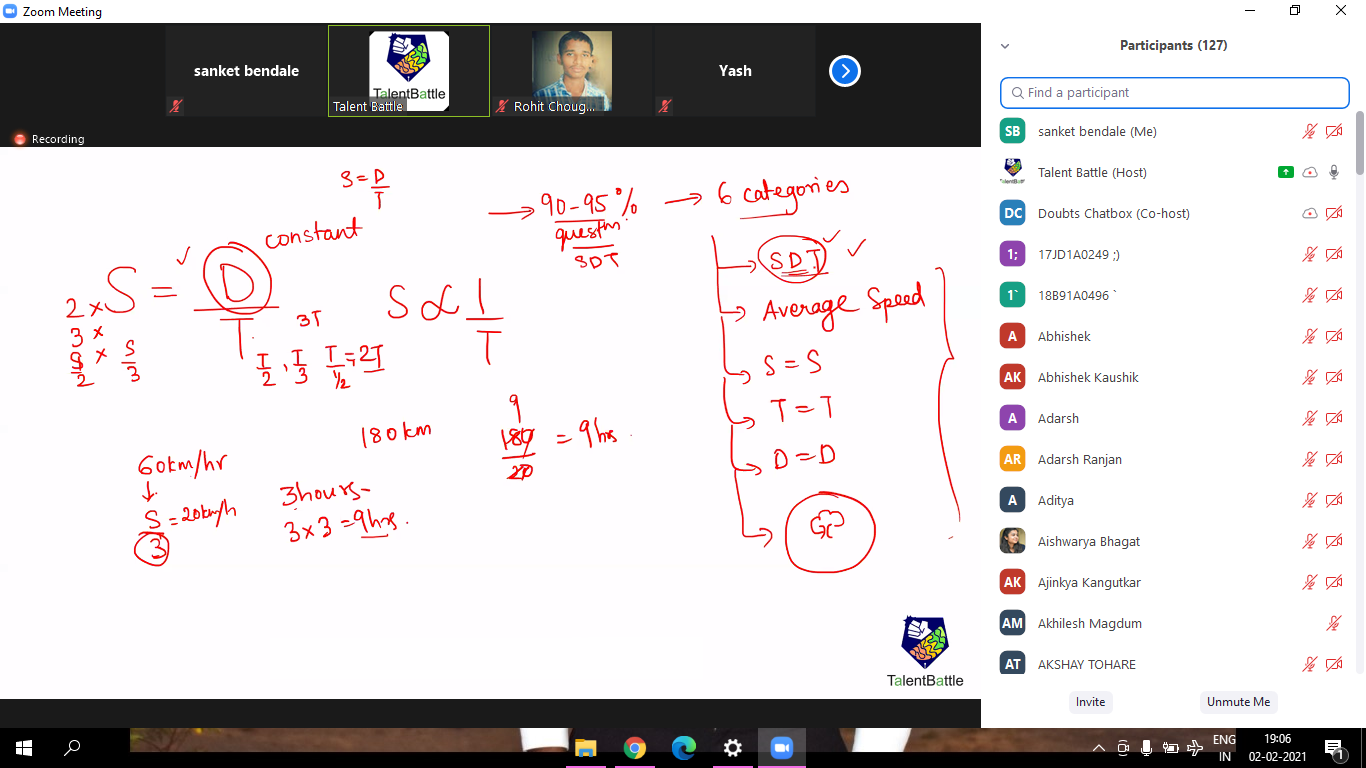 Zoom Meeting
sanket bendale
TalentBattle
Talent Battle
Rohit Choug...
Yash
Recording
S = D/T
→ 90-95% → 6 categories
questns
SDT
constant
S = D/T
S ∝ 1/T
2 ×
3 ×
S/2 × S/3
3T
T/2, T/3 T/½ = 2T
SDT
Average Speed
S = S
T = T
D = D
180km
9
180/20 = 9hrs.
60km/hr
S/3 = 20km/h
3hours-
3×3 = 9hrs.
TalentBattle
Participants (127)
Find a participant
SB sanket bendale (Me)
Talent Battle (Host)
DC Doubts Chatbox (Co-host)
1; 17JD1A0249 ;)
1` 18B91A0496 `
A Abhishek
AK Abhishek Kaushik
A Adarsh
AR Adarsh Ranjan
A Aditya
Aishwarya Bhagat
AK Ajinkya Kangutkar
AM Akhilesh Magdum
AT AKSHAY TOHARE
Invite
Unmute Me
ENG
IN
19:06
02-02-2021
1